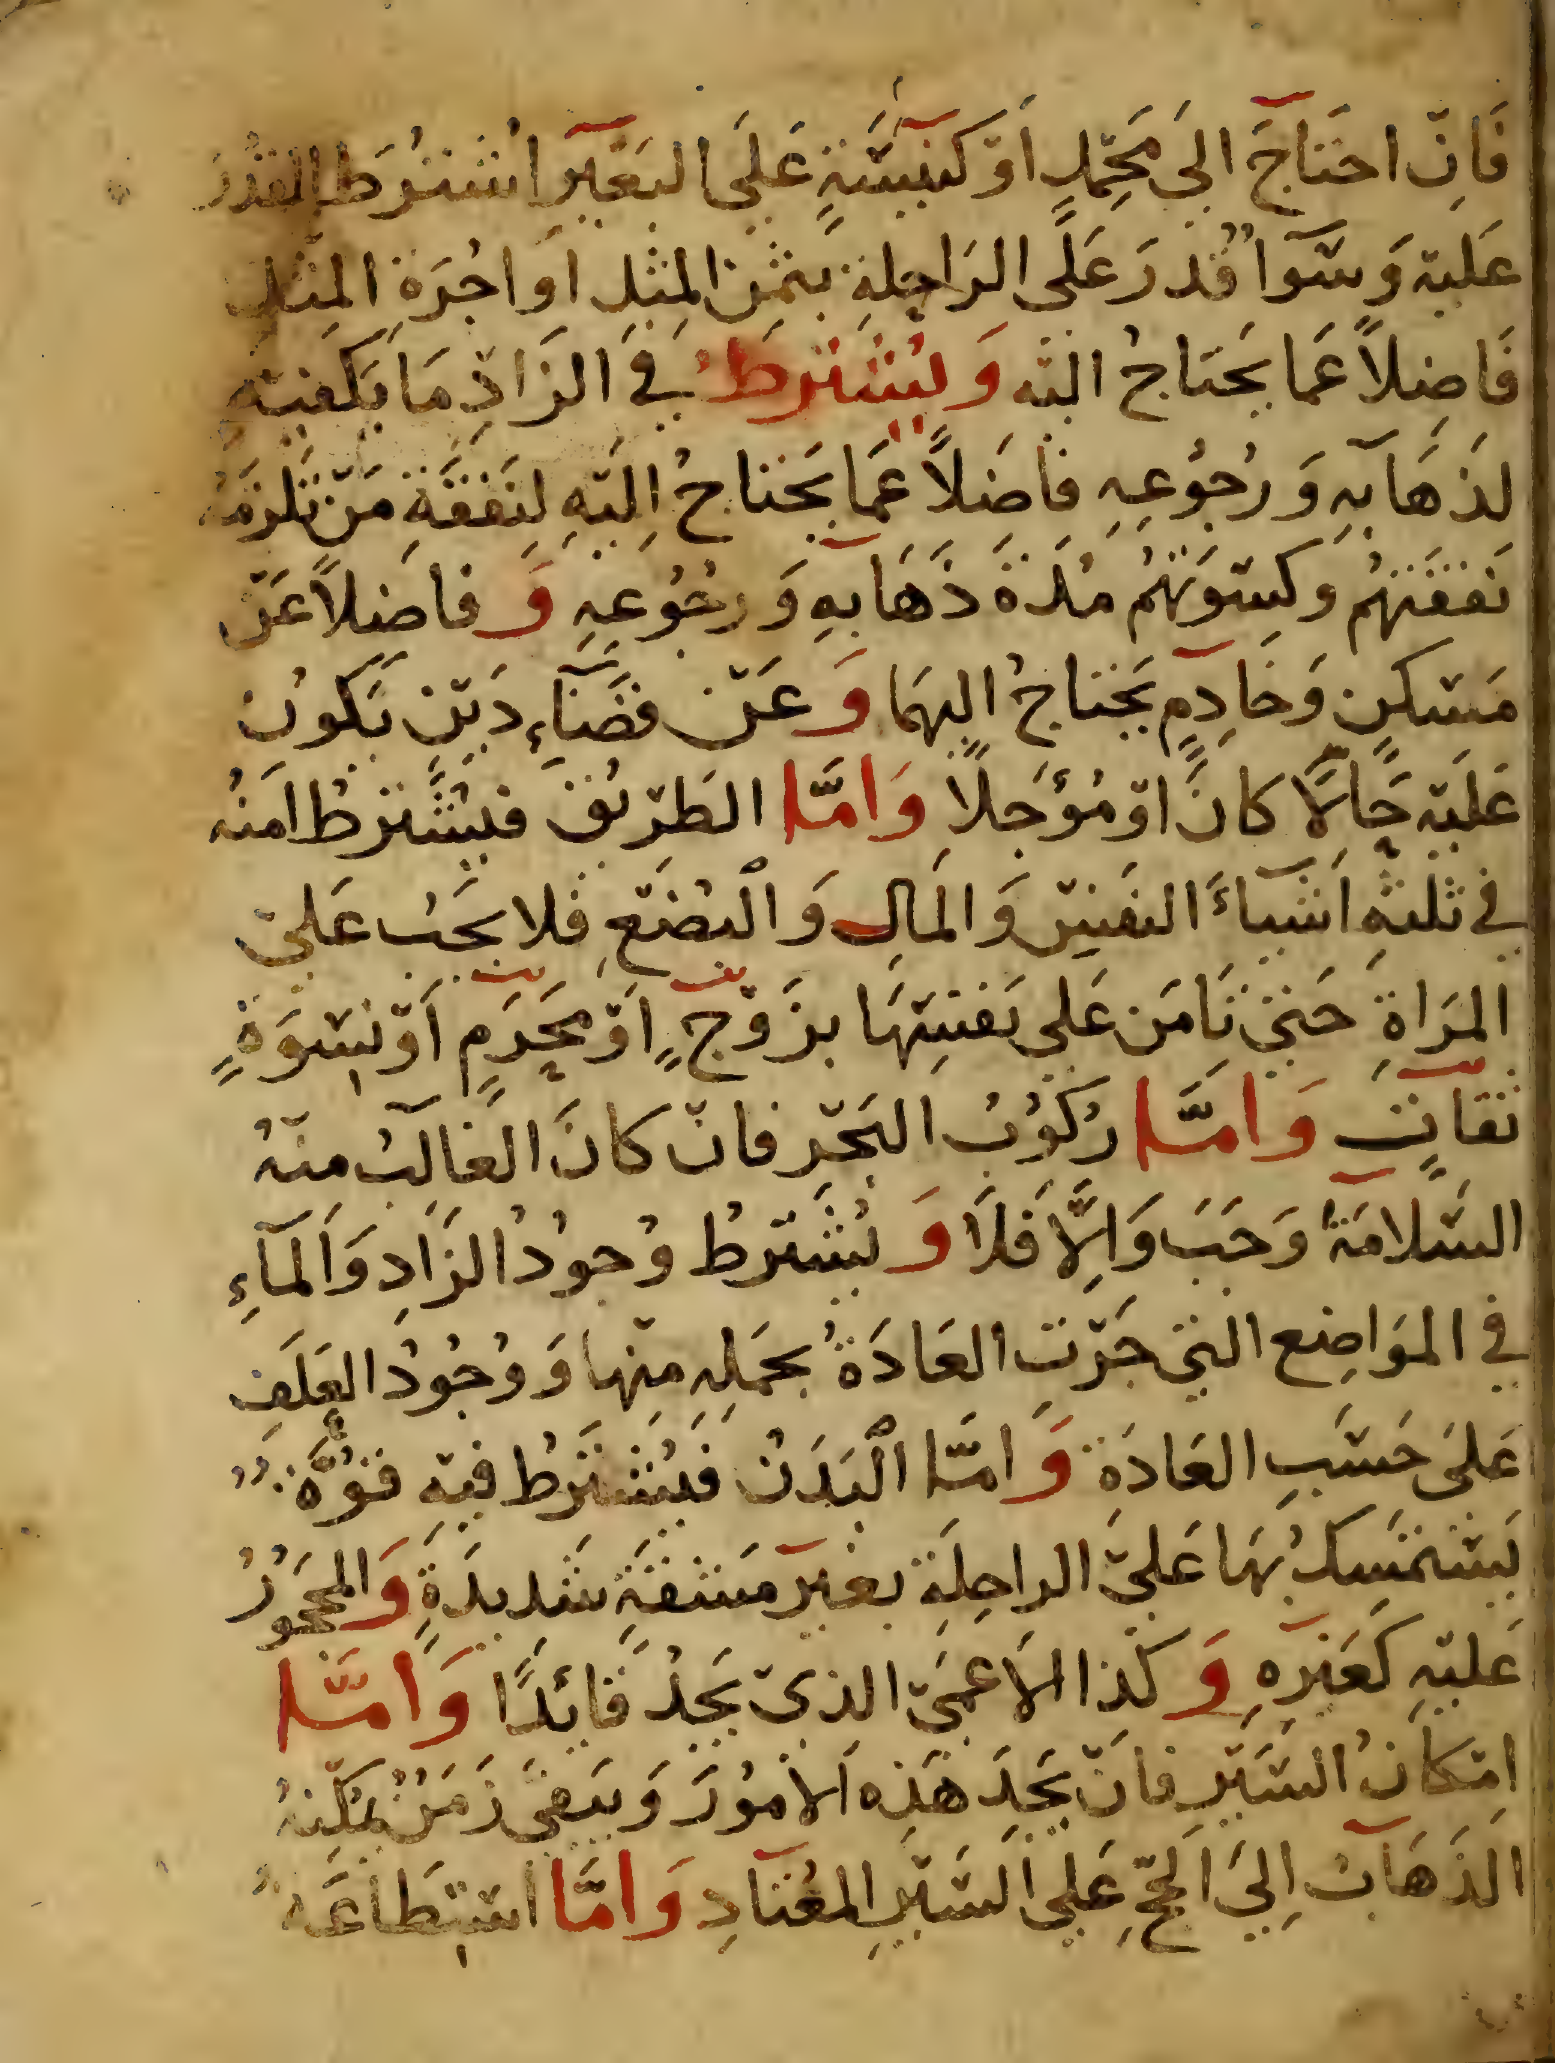 فَاِنْ احْتَاجَ اِلَى مَحْمِلٍ اَوْ كَنِيْسَةٍ عَلَى البَعْيْرِ اشْتُرِطَ القُدْرَةُ
عَلَيْهِ وَسَوَآءٌ قَدَرَ عَلَى الرَاحِلَةِ بِثَمَنِ المِثْلِ اَوْ اُجْرَةِ المِثْلِ
فَاضِلاً عَمَا يَحْتَاجُ اليْهِ وَيُشْتَرَطُ فِي الزَادِ مَا يَكْفِيْهِ
لِذَهَابِهِ وَرُجُوْعِهِ فَاضِلاً عَمَا يَحْتاجُ اِلَيْهِ لِنَفَقَةِ مَنْ تَلْزَمُهُ
نَفَقَتُهُمْ وَكِسْوَتُهُمْ مُدَةَ ذَهَابِهِ وَرجُوْعِهِ وَفَاضِلاً عَنْ
مَسْكِنٍ وَخَادِمٍ يَحْتَاجُ اليهِمَا وَعَنْ قَضَآءِ دَيْنٍ يَكونُ
عَلَيْهِ حَالًّا كَانَ اوْ مُؤَجَلًا وَاَمَّا الطَرِيْقُ فيُشْتَرَطُ اَمْنُهُ
فِي ثلثةِ اَشْيَآءَ النفْسِ وَالمَالِ وَالْبُضْعِ فلا يَجَبُ عَلَى
المَرَاةِ حَتى تَامَنَ عَلى نَفْسِهَا بِزَوْجٍ اَوْ مَحْرَمٍ اَوْ نِسْوَةٍ
ثقاتٍ وَاَمَّا رُكُوْبُ البَحْرِ فانْ كَانَ الغَالِبُ مِنْهُ
السَلامَةُ وَجَبَ وَاِلَّا فَلَا وَيُشْتَرَطُ وُجوْدُ الزَادِ وَالمَآءِ
فِي المَوَاضِعِ التي جَرَتْ العَادَةُ بِحَمْلِهِ مِنْهَا وَوُجُوْدُ العَلَفِ
عَلَى حَسَبِ العَادَةِ وَاَمَّا الْبَدَنُ فَيُشْتَرَطُ فيْهِ قُوَّةٌ
يَسْتَمْسِكُ بِهَا عَلَى الراحِلَةِ بِغيْرِ مَشقَةٍ شَدِيدَةٍ وَالمحجُوْرُ
عَليْهِ كَغَيْرِهِ وَكَذا الاَعْمَى الذِى يَجِدُ قَائِدًا وَاَمَّا
اِمْكَانُ السَيْرِ فانْ يَجِدَ هَذِهِ الاُمُوْرَ وَيَبْقى زَمَنٌ يُمْكِنُهُ
الذَهَابُ اِلَى الحَجِّ عَلى السَيْرِ المُعْتَادِ وَاَمَّا اسْتِطَاعَةُ